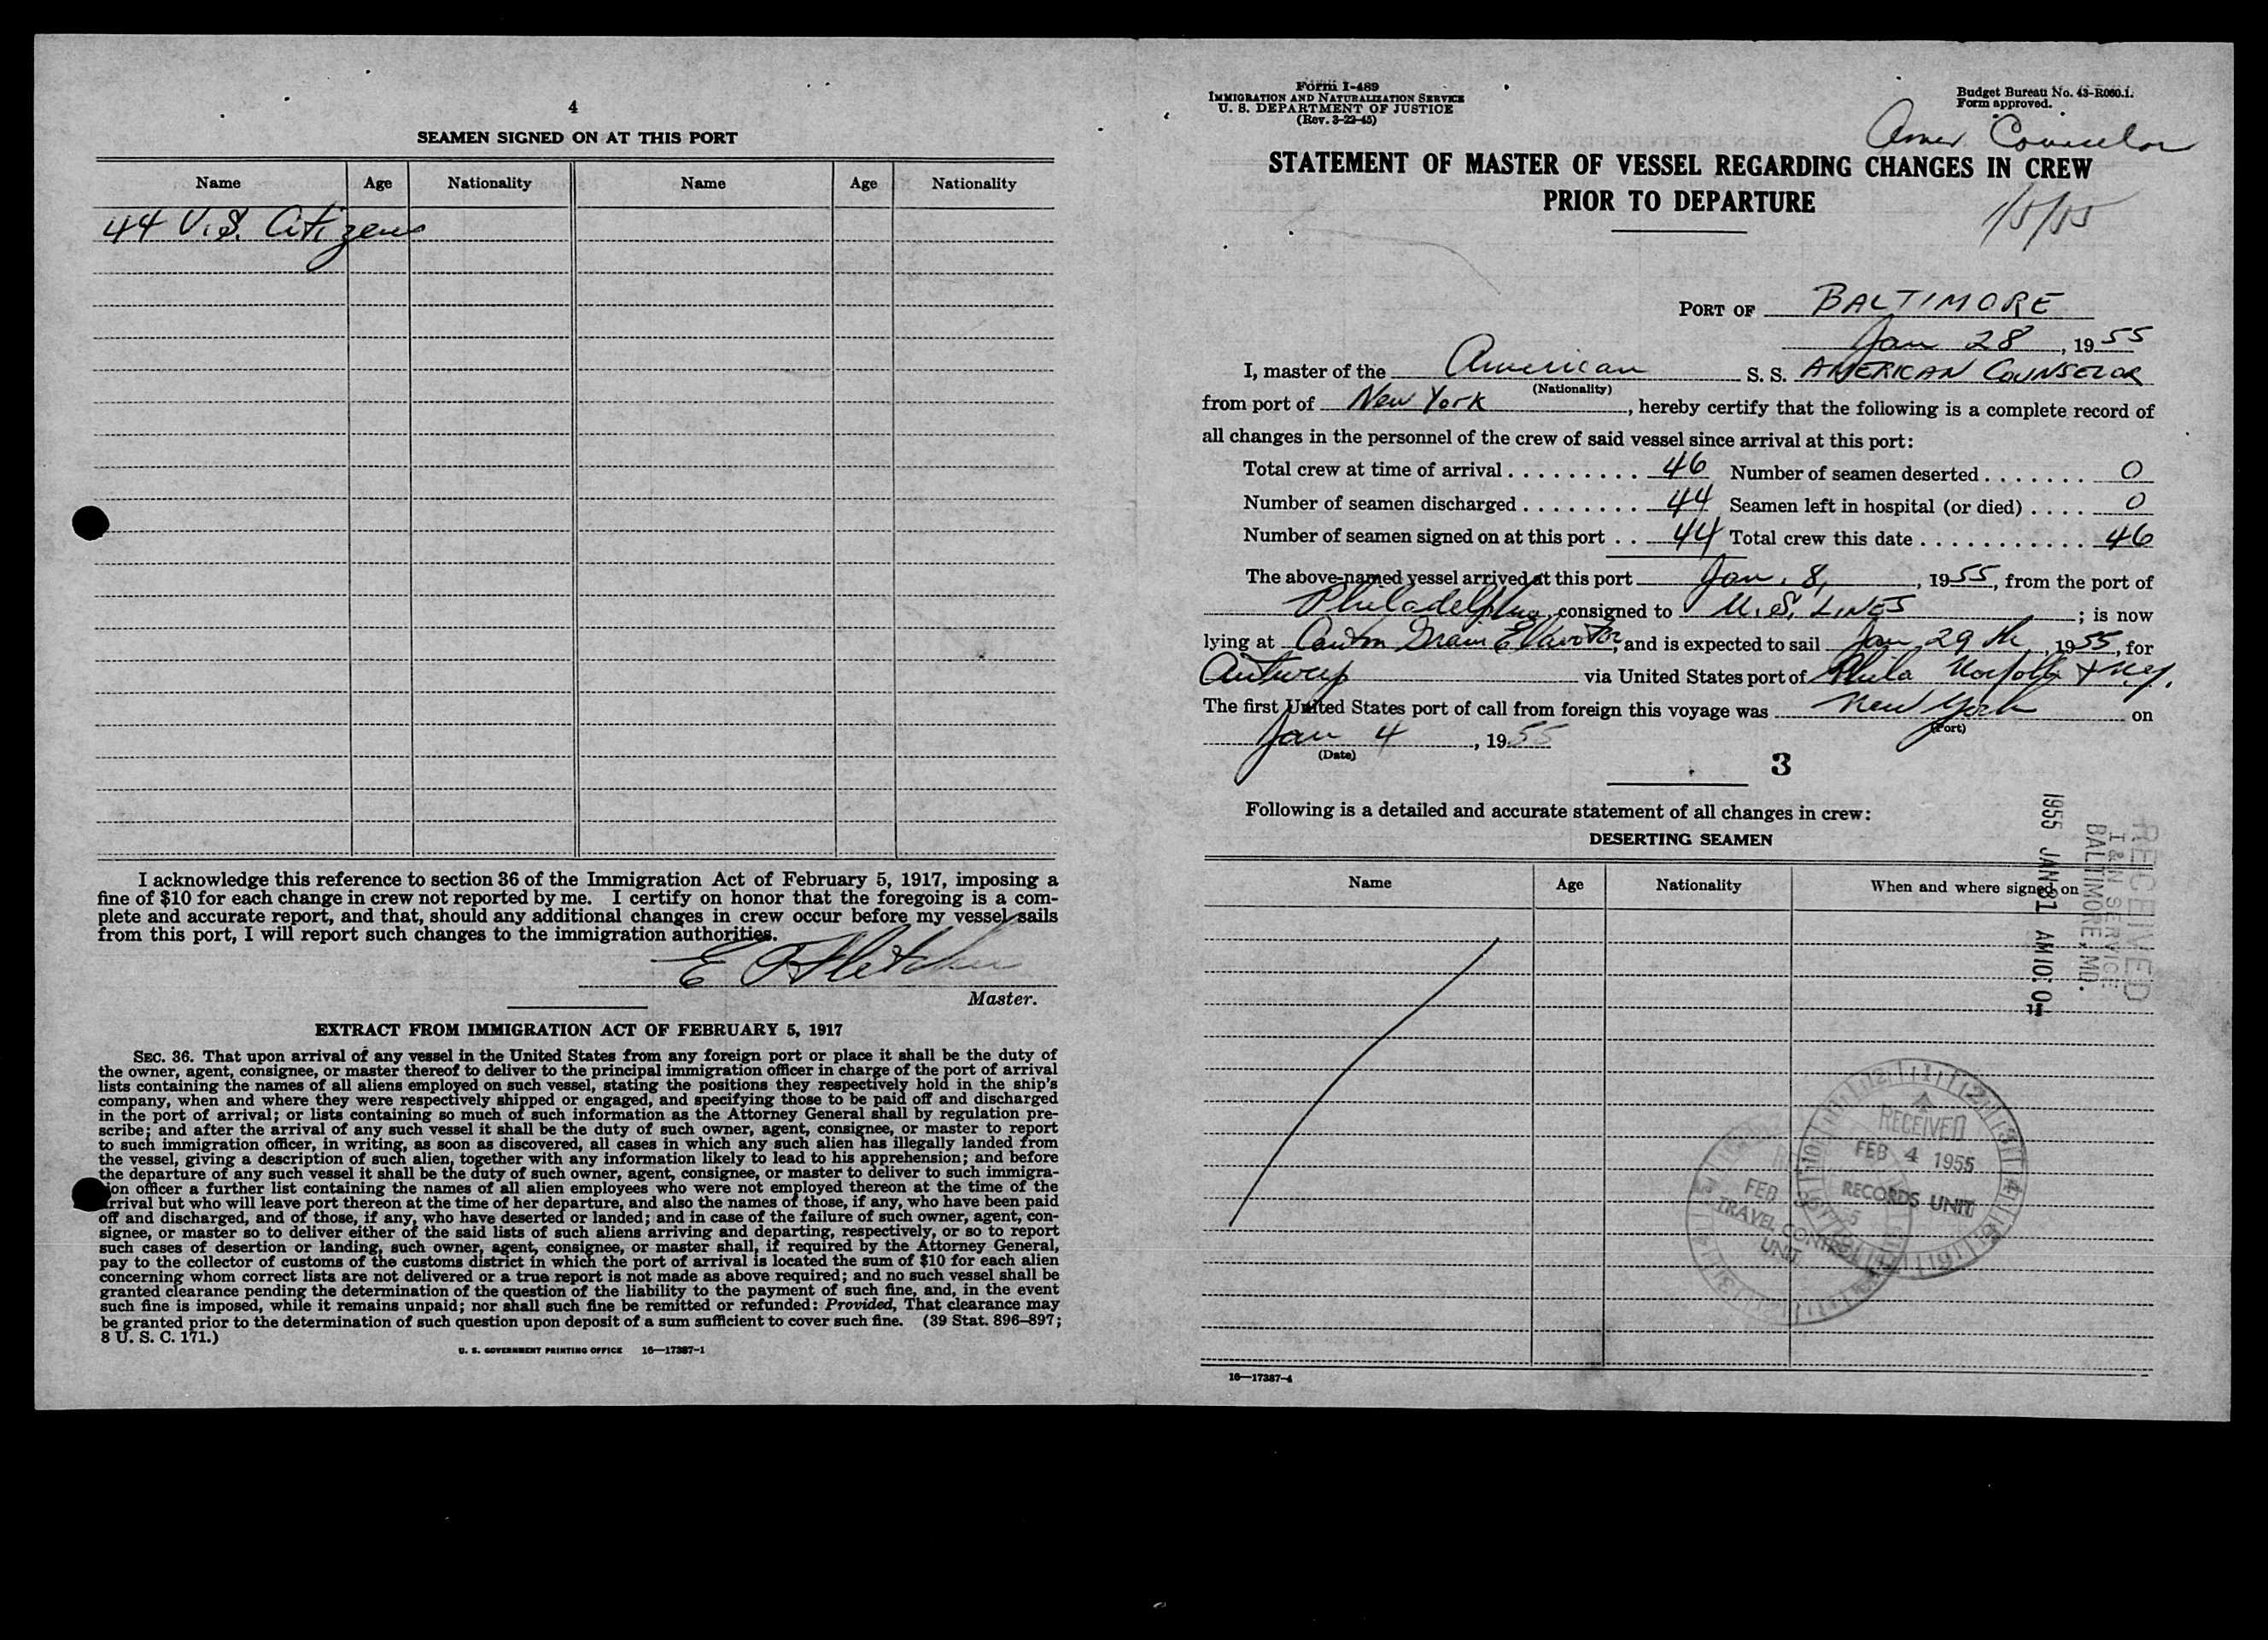 4
SEAMEN SIGNED ON AT THIS PORT
Name Age Nationality Name Age Nationality
44 U.S. Citizens
I acknowledge this reference to section 36 of the Immigration Act of February 5, 1917, imposing a
fine of $10 for each change in crew not reported by me. I certify on honor that the foregoing is a com-
plete and accurate report, and that, should any additional changes in crew occur before my vessel sails
from this port, I will report such changes to the immigration authorities.
E Fletcher
Master.
EXTRACT FROM IMMIGRATION ACT OF FEBRUARY 5, 1917
SEC. 36. That upon arrival of any vessel in the United States from any foreign port or place it shall be the duty of
the owner, agent, consignee, or master thereof to deliver to the principal immigration officer in charge of the port of arrival
lists containing the names of all aliens employed on such vessel, stating the positions they respectively hold in the ship's
company, when and where they were respectively shipped or engaged, and specifying those to be paid off and discharged
in the port of arrival; or lists containing so much of such information as the Attorney General shall by regulation pre-
scribe; and after the arrival of any such vessel it shall be the duty of such owner, agent, consignee, or master to report
to such immigration officer, in writing, as soon as discovered, all cases in which any such alien has illegally landed from
the vessel, giving a description of such alien, together with any information likely to lead to his apprehension; and before
the departure of any such vessel it shall be the duty of such owner, agent, consignee, or master to deliver to such immigra-
ion officer a further list containing the names of all alien employees who were not employed thereon at the time of the
arrival but who will leave port thereon at the time of her departure, and also the names of those, if any, who have been paid
off and discharged, and of those, if any, who have deserted or landed; and in case of the failure of such owner, agent, con-
signee, or master so to deliver either of the said lists of such aliens arriving and departing, respectively, or so to report
such cases of desertion or landing, such owner, agent, consignee, or master shall, if required by the Attorney General,
pay to the collector of customs of the customs district in which the port of arrival is located the sum of $10 for each alien
concerning whom correct lists are not delivered or a true report is not made as above required; and no such vessel shall be
granted clearance pending the determination of the question of the liability to the payment of such fine, and, in the event
such fine is imposed, while it remains unpaid; nor shall such fine be remitted or refunded: Provided, That clearance may
be granted prior to the determination of such question upon deposit of a sum sufficient to cover such fine. (39 Stat. 896–897;
8 U. S. C. 171.)
U. S. GOVERNMENT PRINTING OFFICE 16—17387-1
Form I-489
IMMIGRATION AND NATURALIZATION SERVICE
U. S. DEPARTMENT OF JUSTICE
(Rev. 3-22-45)
Budget Bureau No. 43-R060.1.
Form approved.
Amer Counselor
STATEMENT OF MASTER OF VESSEL REGARDING CHANGES IN CREW
PRIOR TO DEPARTURE
PORT OF BALTIMORE
Jan 28, 1955
I, master of the American S. S. AMERICAN COUNSELOR
(Nationality)
from port of New York, hereby certify that the following is a complete record of
all changes in the personnel of the crew of said vessel since arrival at this port:
Total crew at time of arrival . . . . . . . . . 46 Number of seamen deserted . . . . . . . 0
Number of seamen discharged . . . . . . . . 44 Seamen left in hospital (or died) . . . . 0
Number of seamen signed on at this port . . 44 Total crew this date . . . . . . . . . . . . 46
The above-named vessel arrived at this port Jan. 8, 1955, from the port of
Philadelphia, consigned to U.S. LINES; is now
lying at Canton Grain Elevator, and is expected to sail Jan 29th, 1955, for
Antwerp via United States port of Phila Norfolk & N.Y.
The first United States port of call from foreign this voyage was New York on
(Port)
Jan 4, 1955
(Date)
3
Following is a detailed and accurate statement of all changes in crew:
DESERTING SEAMEN
Name Age Nationality When and where signed on
RECEIVED
I & N SERVICE
BALTIMORE, MD.
1955 JAN 31 AM 10:
RECEIVED
FEB 4 1955
RECORDS UNIT
FEB
TRAVEL CONTROL
UNIT
16—17387-4